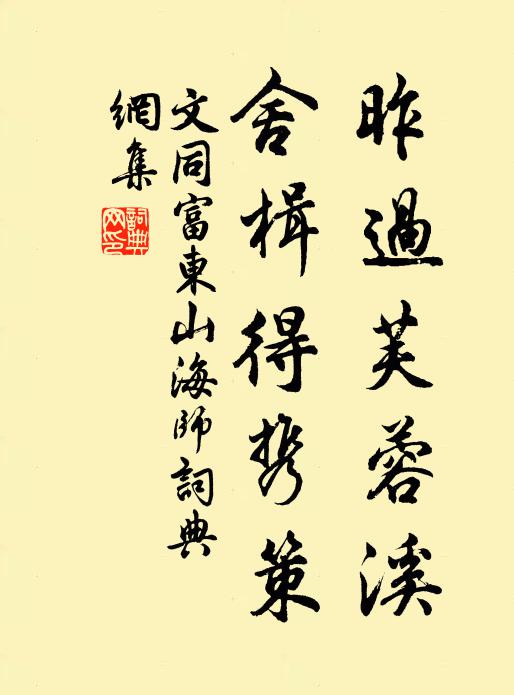 昨過芙蓉溪
舍楫得携策
文同富東山海師詞典
網集
詞典
网印